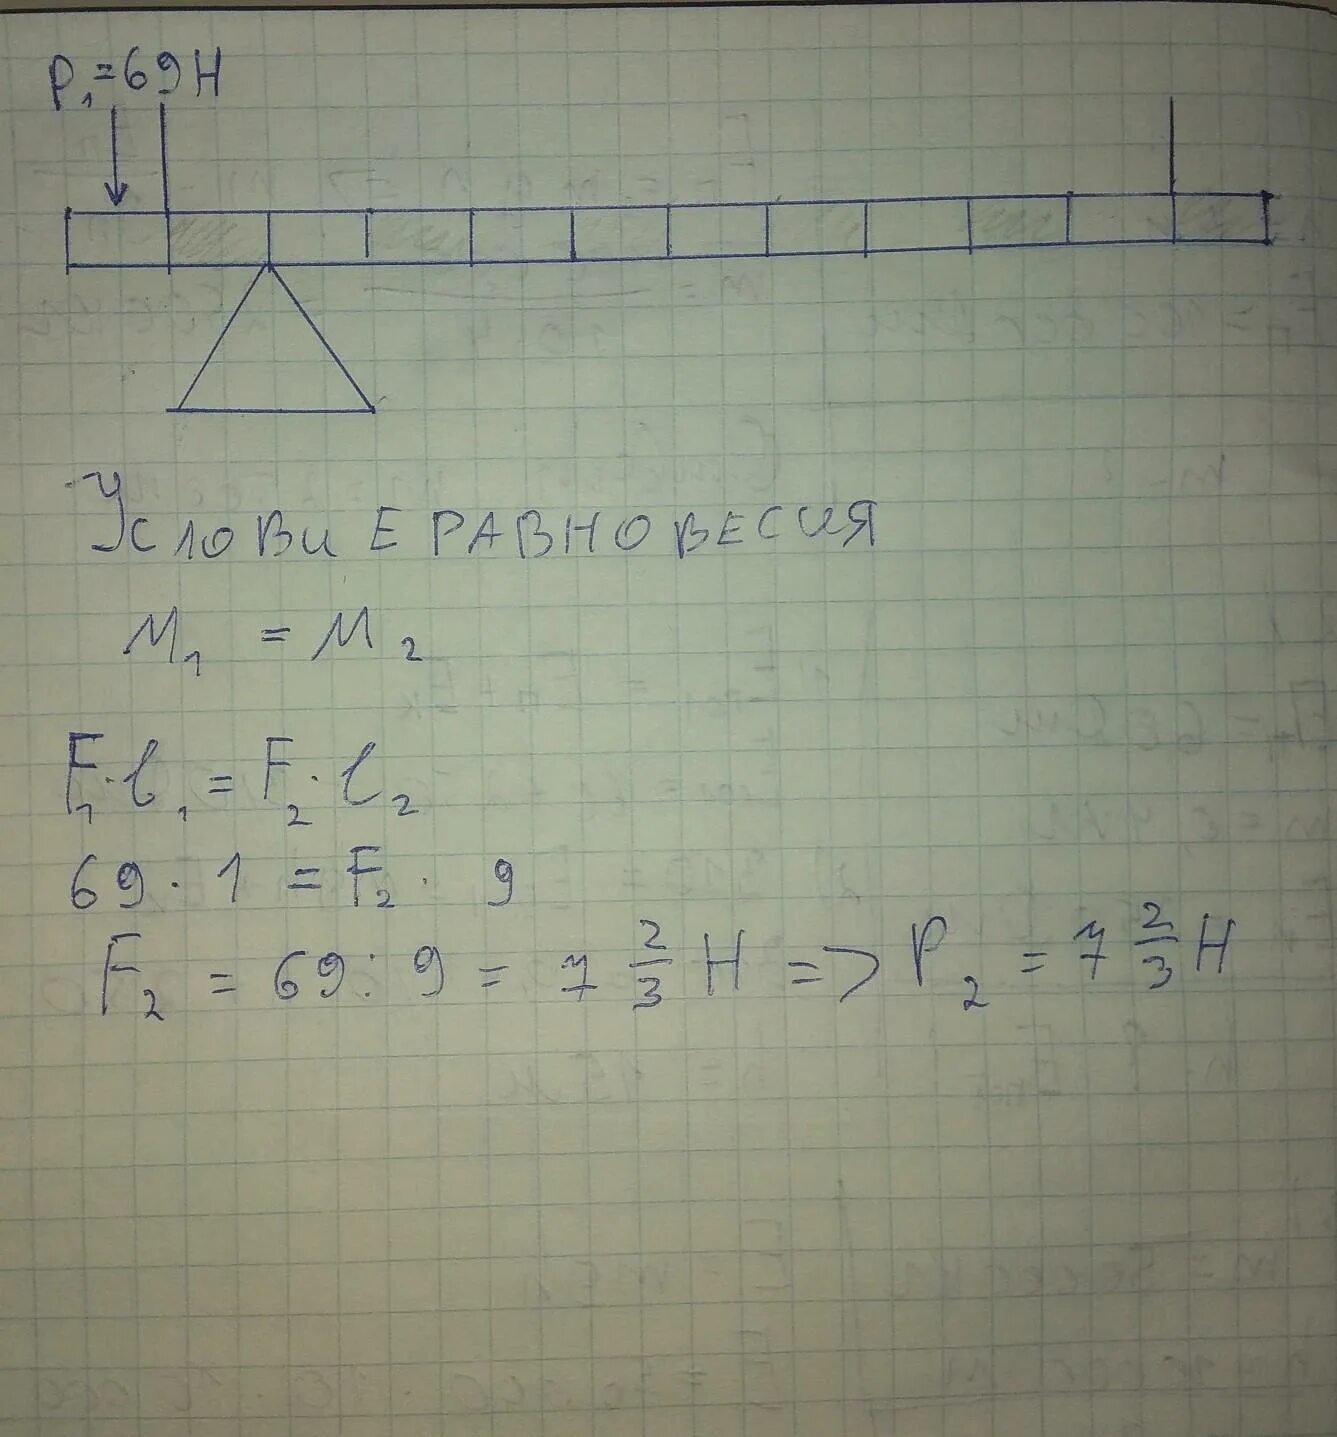 P₁=69Н
УСЛОВИЕ РАВНОВЕСИЯ
M₁ = M₂
F₁·l₁=F₂·l₂
69·1=F₂·9
F₂=69:9=7 2/3 Н => P₂=7 2/3 Н